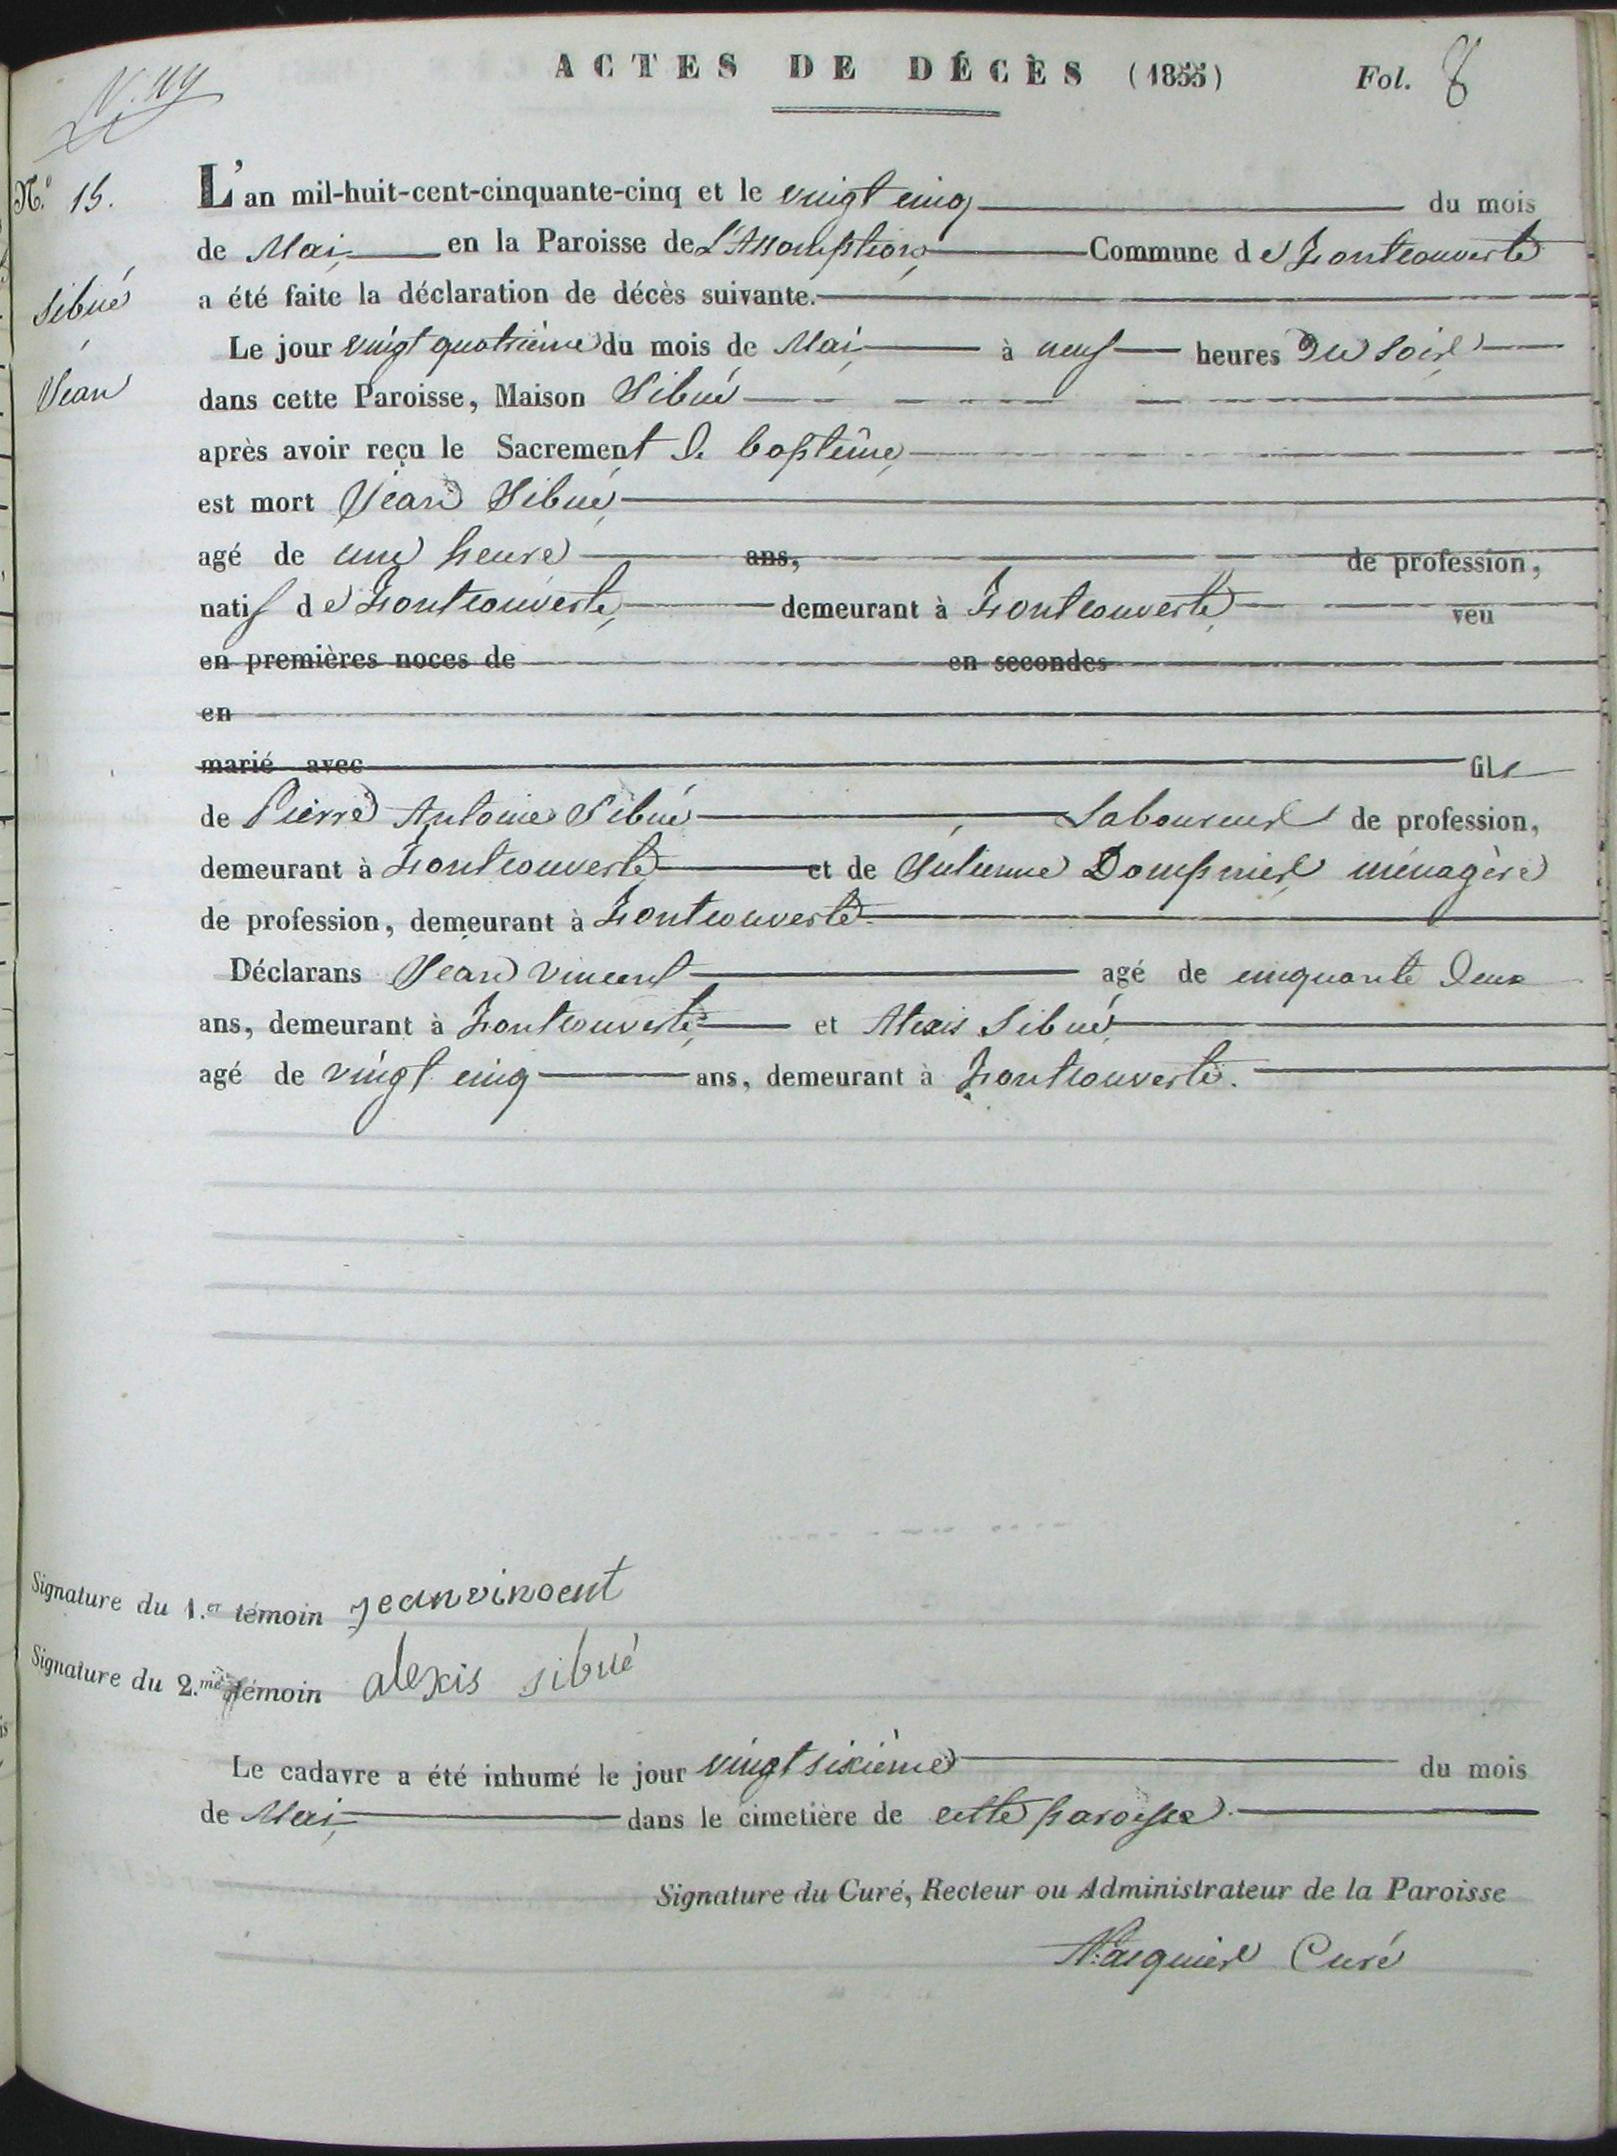 ACTES DE DÉCÈS (1855) Fol. 8
N. 49
N.º 15. L'an mil-huit-cent-cinquante-cinq et le vingt cinq du mois
de Mai, en la Paroisse de L'Assomption, Commune de Fontcouverte
Sibué a été faite la déclaration de décès suivante.
Le jour vingt quatrième du mois de Mai, à neuf heures du soir,
Jean dans cette Paroisse, Maison Sibué
après avoir reçu le Sacrement de baptême,
est mort Jean Sibué,
agé de une heure ans, de profession,
natif de Fontcouverte, demeurant à Fontcouverte, veu
en premières noces de en secondes
en
marié avec fils
de Pierre Antoine Sibué, Laboureur de profession,
demeurant à Fontcouverte et de Julienne Dompnier ménagère
de profession, demeurant à Fontcouverte.
Déclarans Jean Vincent agé de cinquante deux
ans, demeurant à Fontcouverte, et Alexis Sibué,
agé de vingt cinq ans, demeurant à Fontcouverte.
Signature du 1.er témoin jean vincent
Signature du 2.me témoin alexis sibué
Le cadavre a été inhumé le jour vingt sixième du mois
de Mai, dans le cimetière de cette paroisse.
Signature du Curé, Recteur ou Administrateur de la Paroisse
Curé